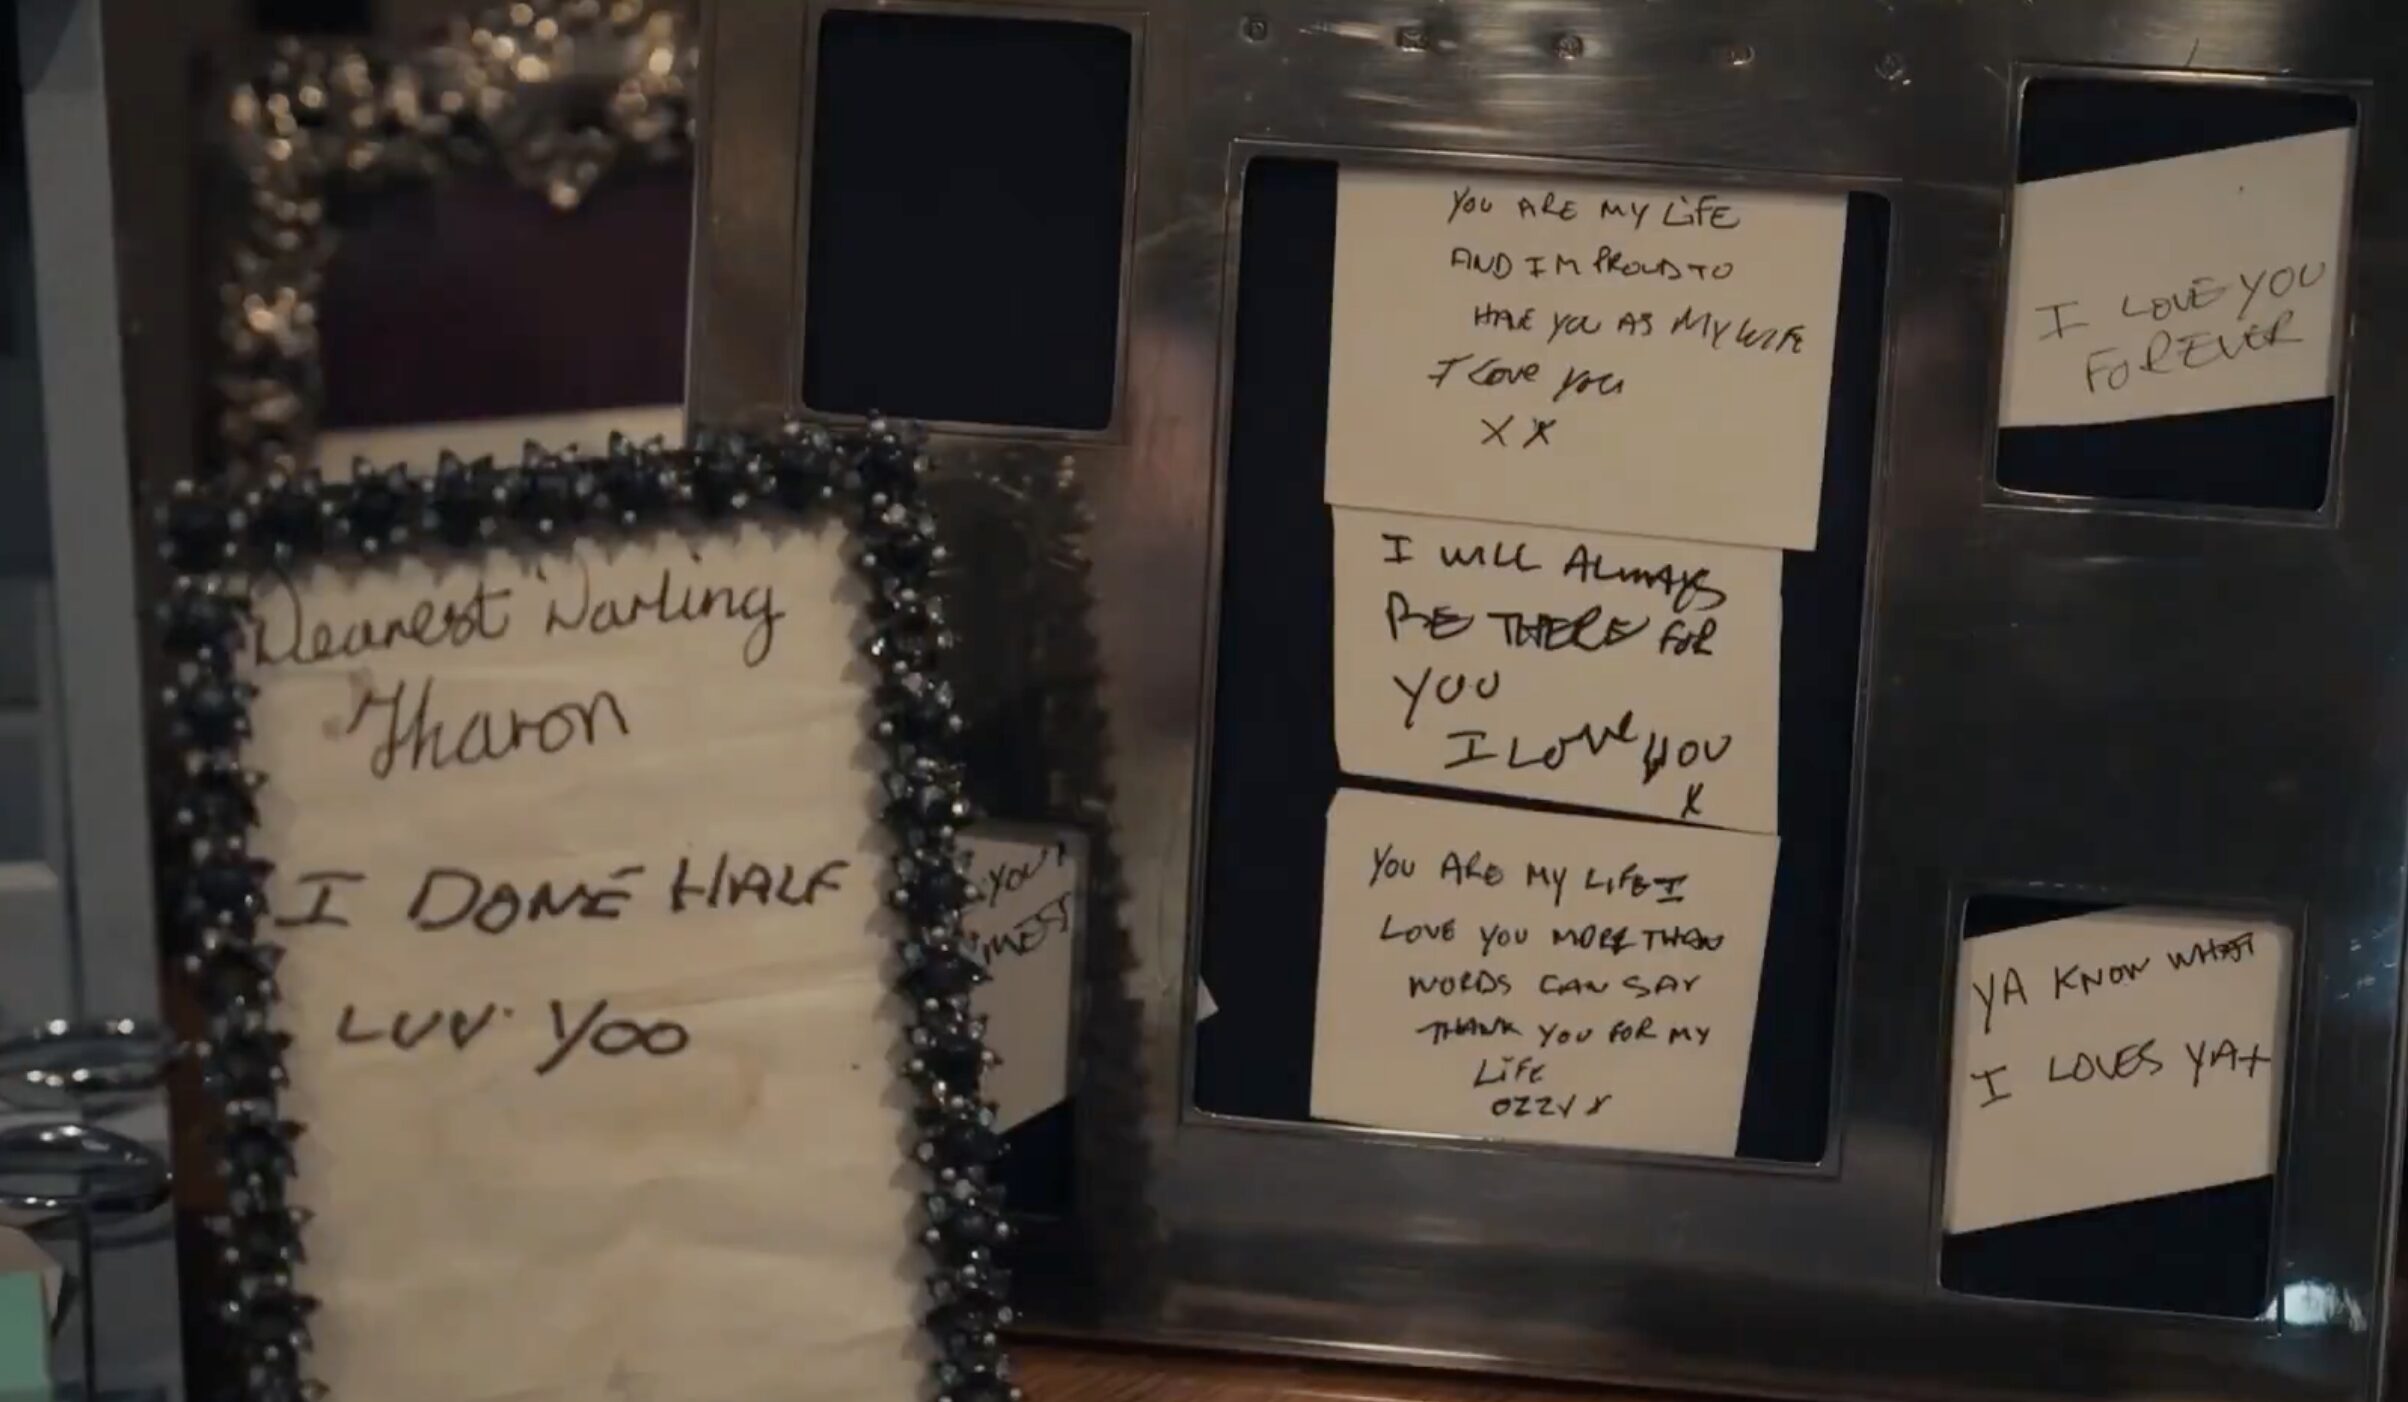 Dearest Darling
Sharon
I DONE HALF
LUV YOO
YOU ARE MY LIFE
AND IM PROUD TO
HAVE YOU AS MY WIFE
I Love you
X X
I WILL ALWAYS
BE THERE FOR
YOU
I LOVE YOU
X
YOU ARE MY LIFE I
LOVE YOU MORE THAN
WORDS CAN SAY
THANK YOU FOR MY
LIFE
OZZY X
I LOVE YOU
FOREVER
YA KNOW WHAT
I LOVES YA X
YOU